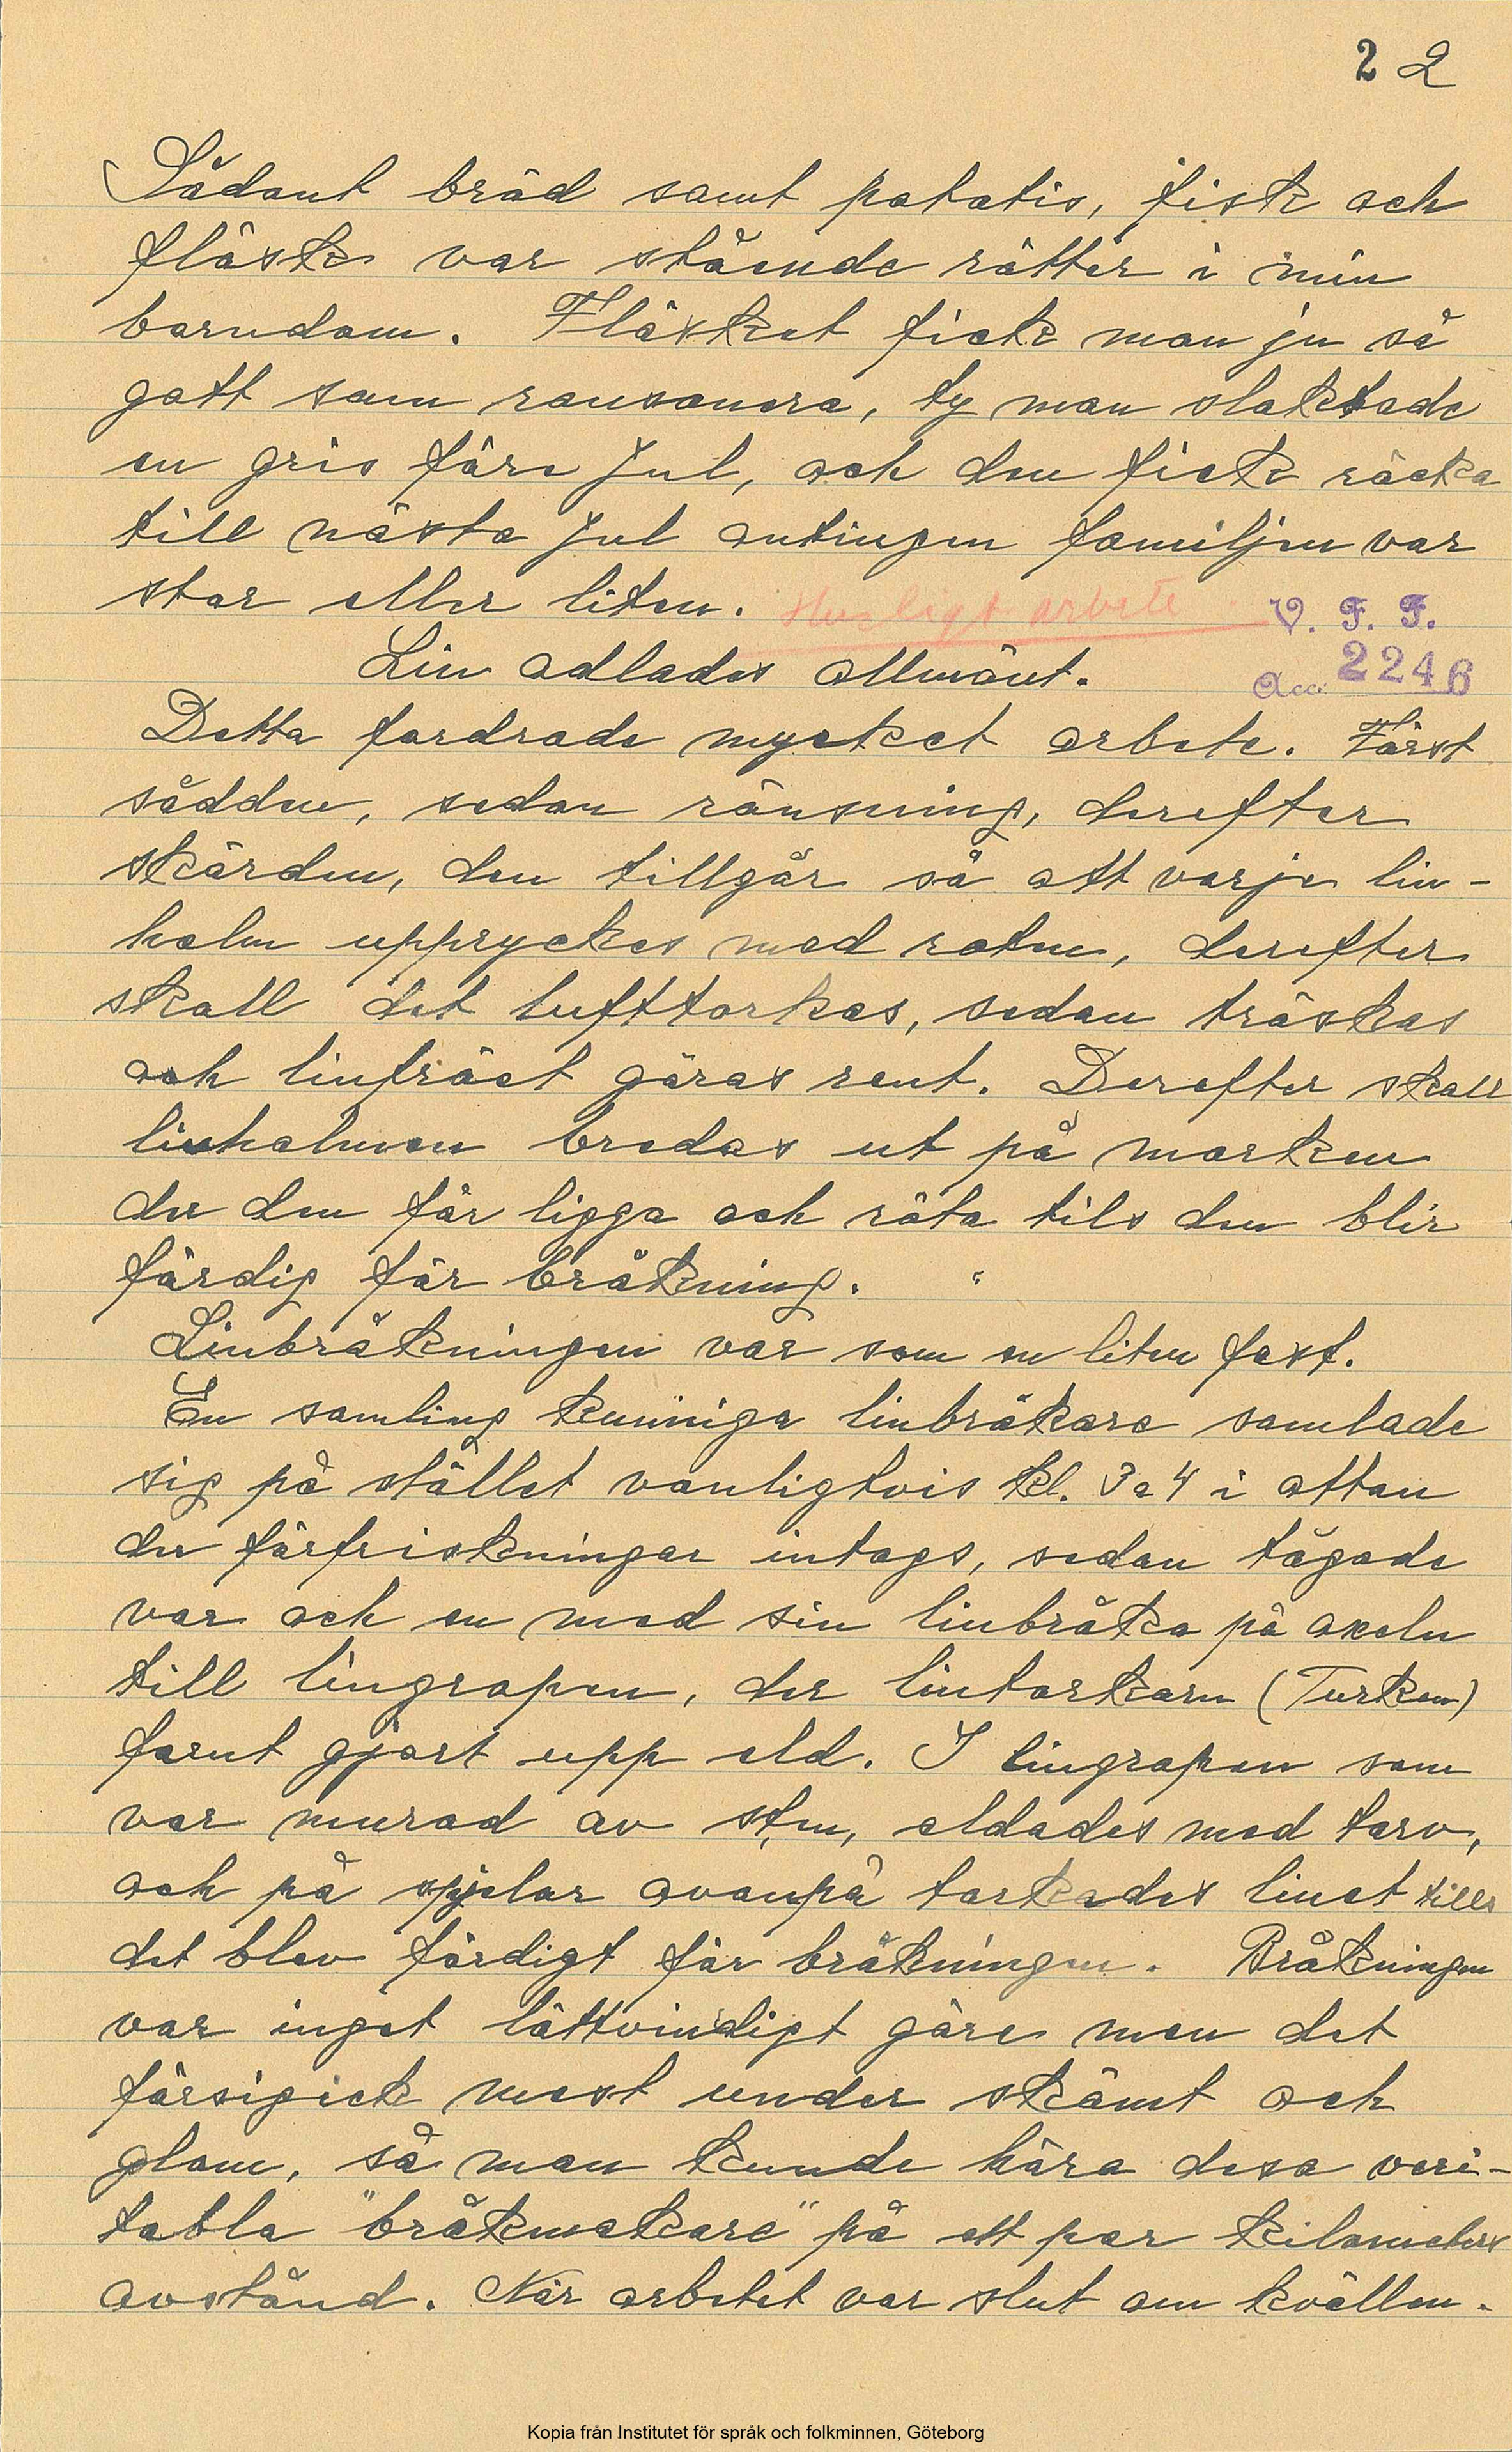 2 2
Sådant bröd samt potatis, fisk och
fläsk var stående rätter i min
barndom. Fläsket fick man ju så
gott som ransonera, ty man slaktade
en gris före jul, och den fick räcka
till nästa jul antingen familjen var
stor eller liten. Husligt arbete V. F. F.
Lin odlades allmänt. Acc. 2246
Detta fordrade mycket arbete. Först
sådden, sedan ränsning, derefter
skörden, den tillgår så att varje lin-
halm uppryckes med roten, derefter
skall det lufttorkas, sedan tröskas
och linfröet göras rent. Derefter skall
linhalmen bredas ut på marken
der den får ligga och röta tils den blir
färdig för bråkning.
Linbråkningen var som en liten fest.
En samling kunniga linbråkare samlade
sig på stället vanligtvis kl. 3 a 4 i ottan
der förfriskningar intogs, sedan tågade
var och en med sin linbråka på axeln
till lingropen, der lintorkarn (Turken)
forut gjort upp eld. I lingropen som
var murad av sten, eldades med torv,
och på spjelor ovanpå torkades linet tills
det blev färdigt för bråkningen. Bråkningen
var inget lättvindigt göre men det
försigick mest under skämt och
glam, så man kunde höra desa veri-
tabla "bråkmakare" på ett par kilometers
avstånd. När arbetet var slut om kvällen.
Kopia från Institutet för språk och folkminnen, Göteborg